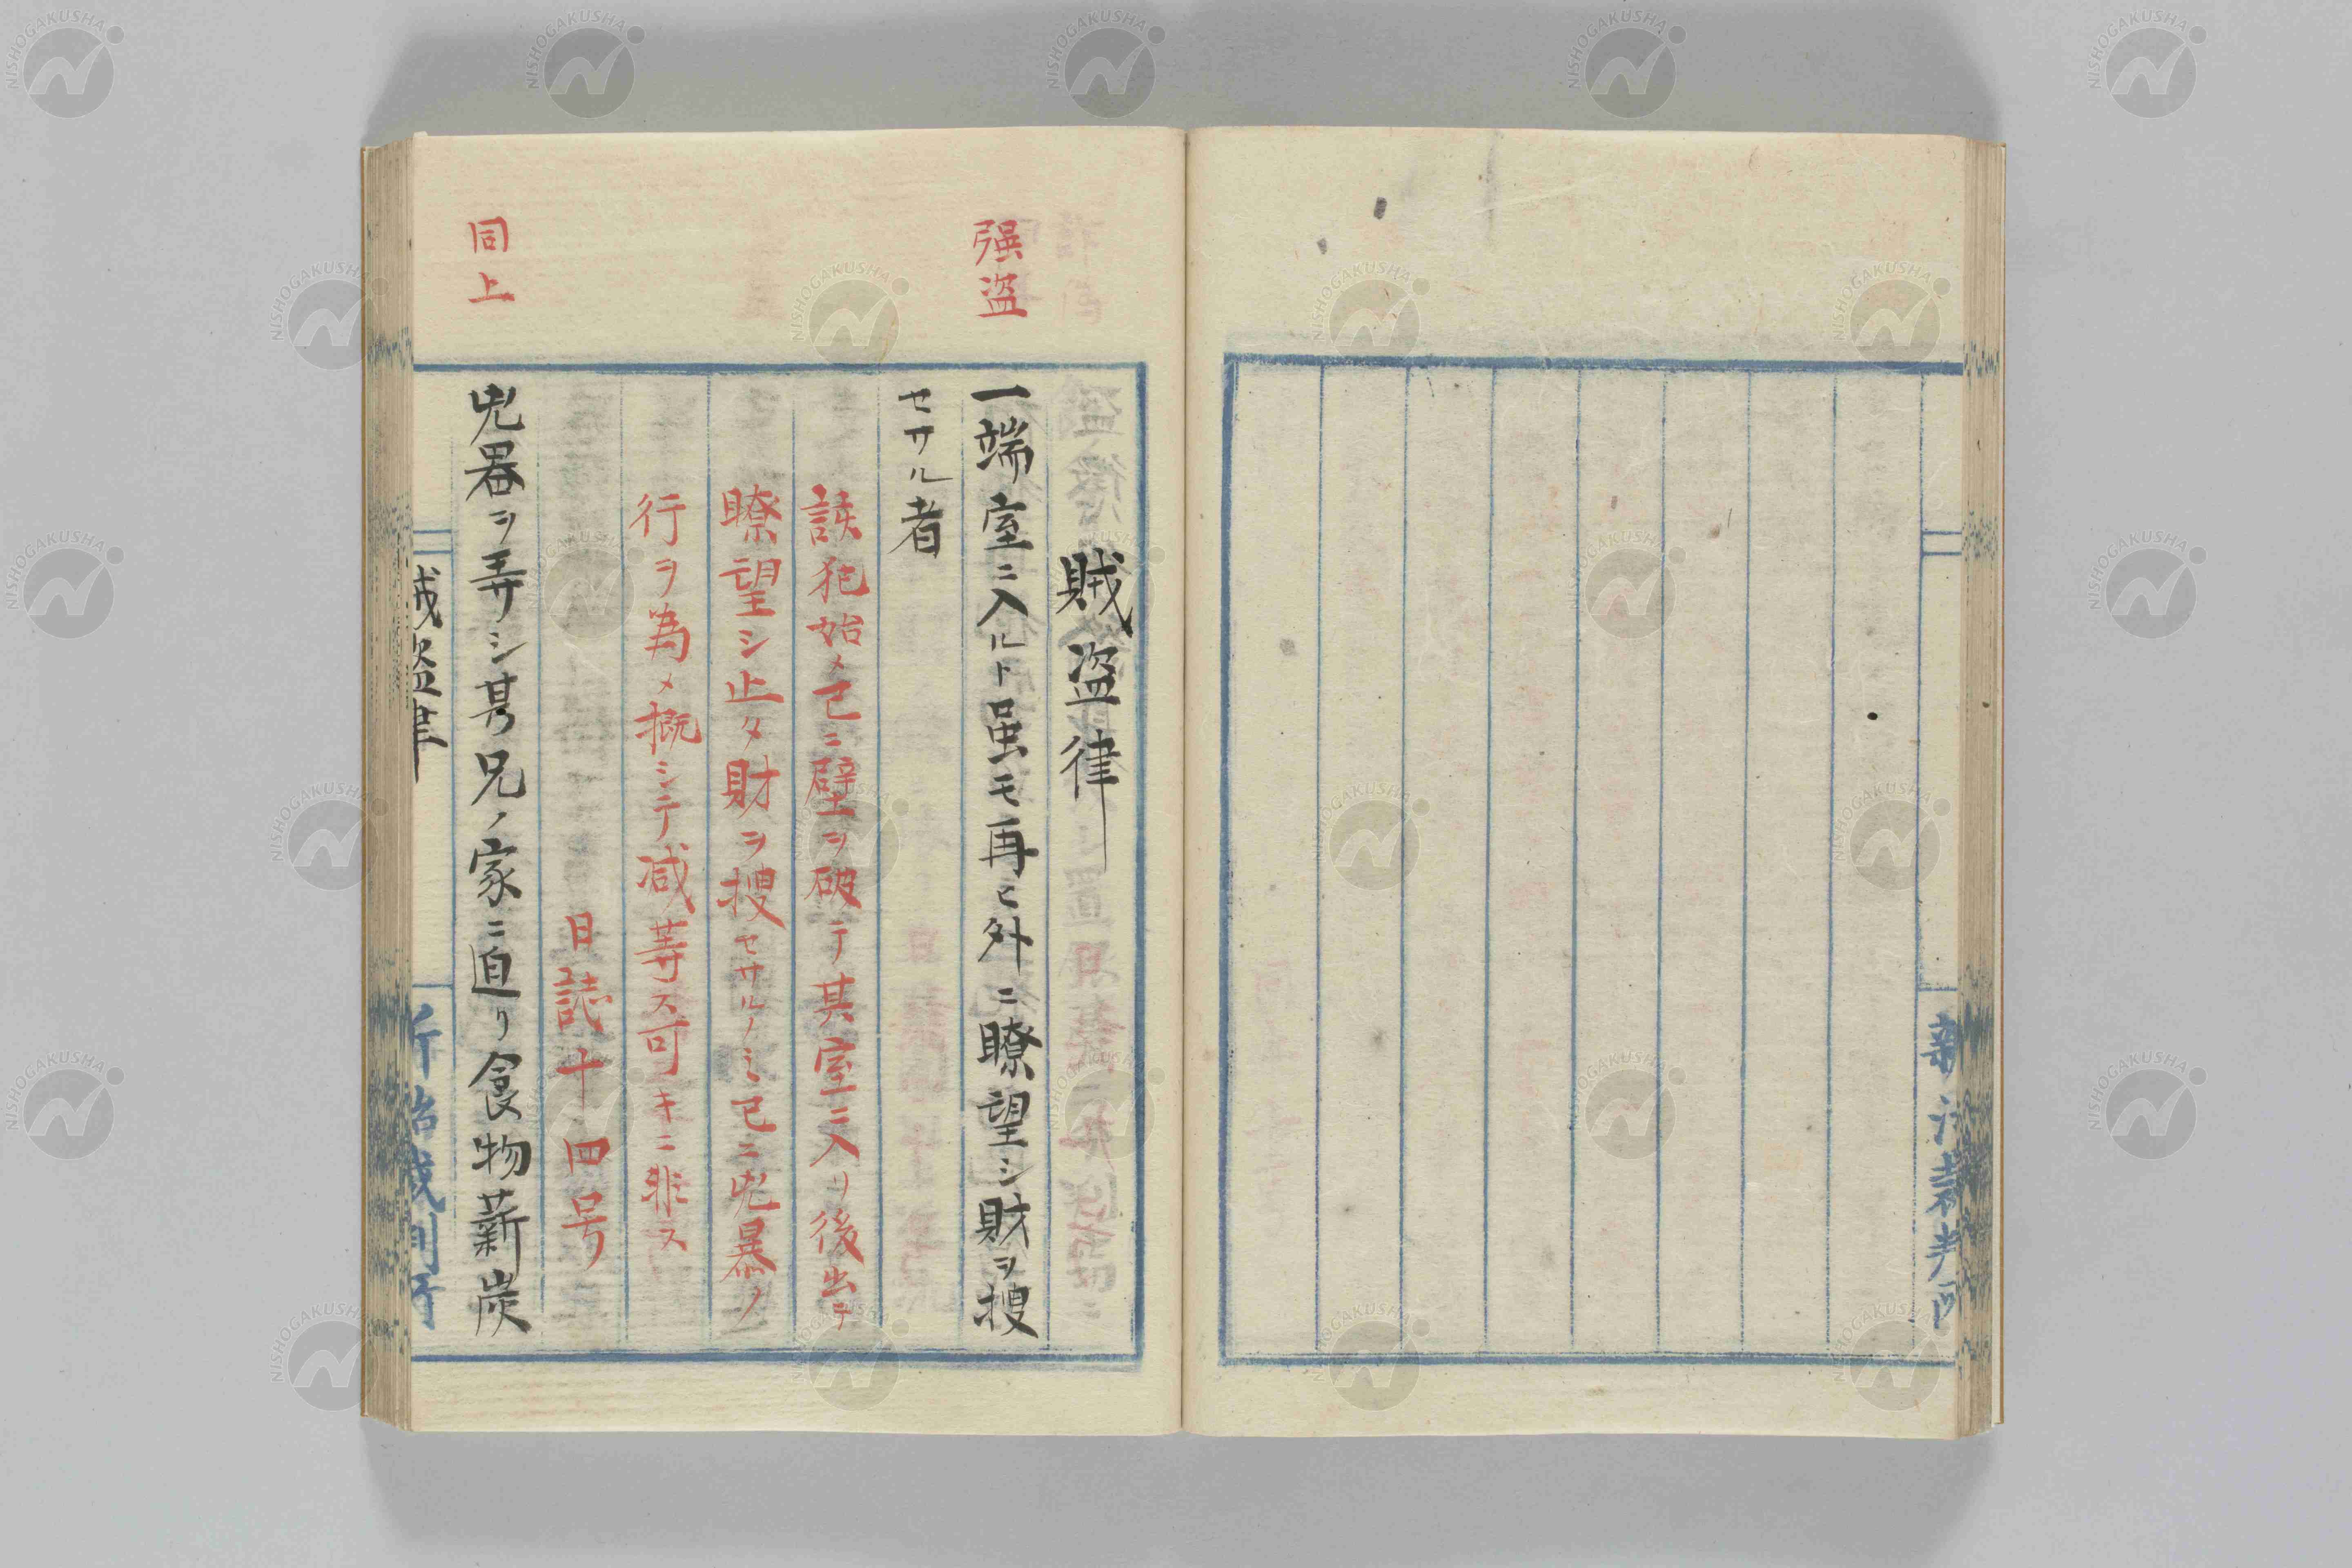 賊盗律
强盗
一端室ニ入ルト虽モ再ヒ外ニ瞭望シ財ヲ搜
セサル者
該犯始メ已ニ壁ヲ破テ其室ニ入リ後出テ
瞭望シ止タ財ヲ搜セサルノミ已ニ兇暴ノ
行ヲ為メ概シテ減等ス可キニ非ス
日誌十四号
同上
兇器ヲ弄シ其兄ノ家ニ迫リ食物薪炭
賊盗律
新治裁判所
新治裁判所
NISHOGAKUSHA